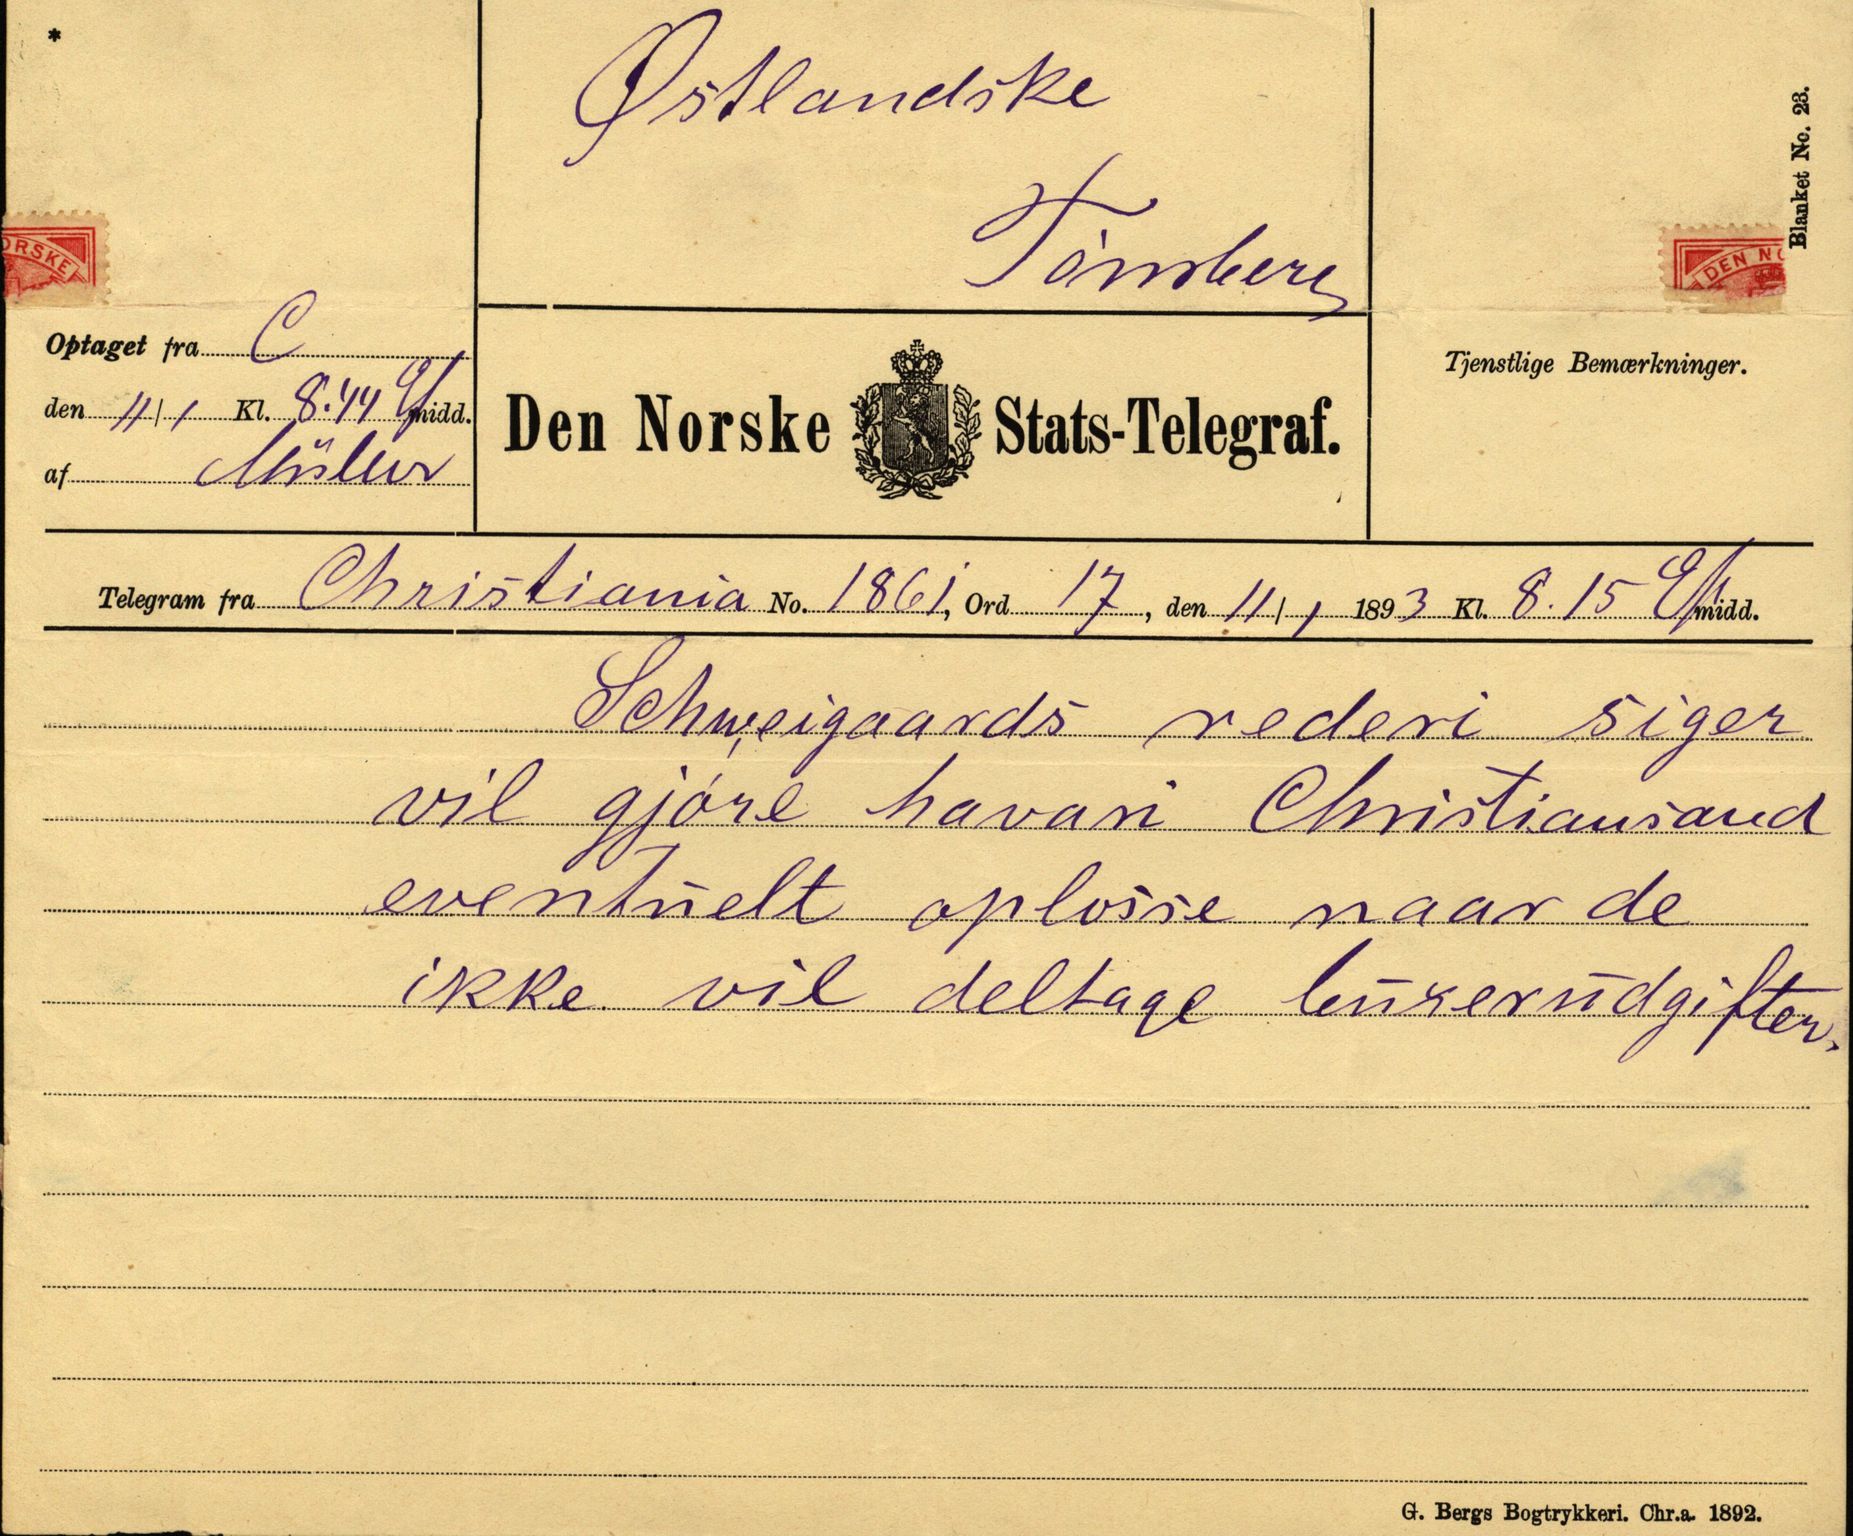 *
Østlandske
Tönsberg
Blanket No. 23.
ORSKE
DEN NO
Optaget fra C
den 11/1 Kl. 8.44 E/midd.
af Müller
Den Norske Stats-Telegraf.
Tjenstlige Bemærkninger.
Telegram fra Christiania No. 1861, Ord 17, den 11/1 1893 Kl. 8.15 E/midd.
Schweigaards rederi siger
vil gjöre havari Christiansand
eventuelt oplosse naar de
ikke vil deltage buxerudgifter.
G. Bergs Bogtrykkeri. Chr.a. 1892.